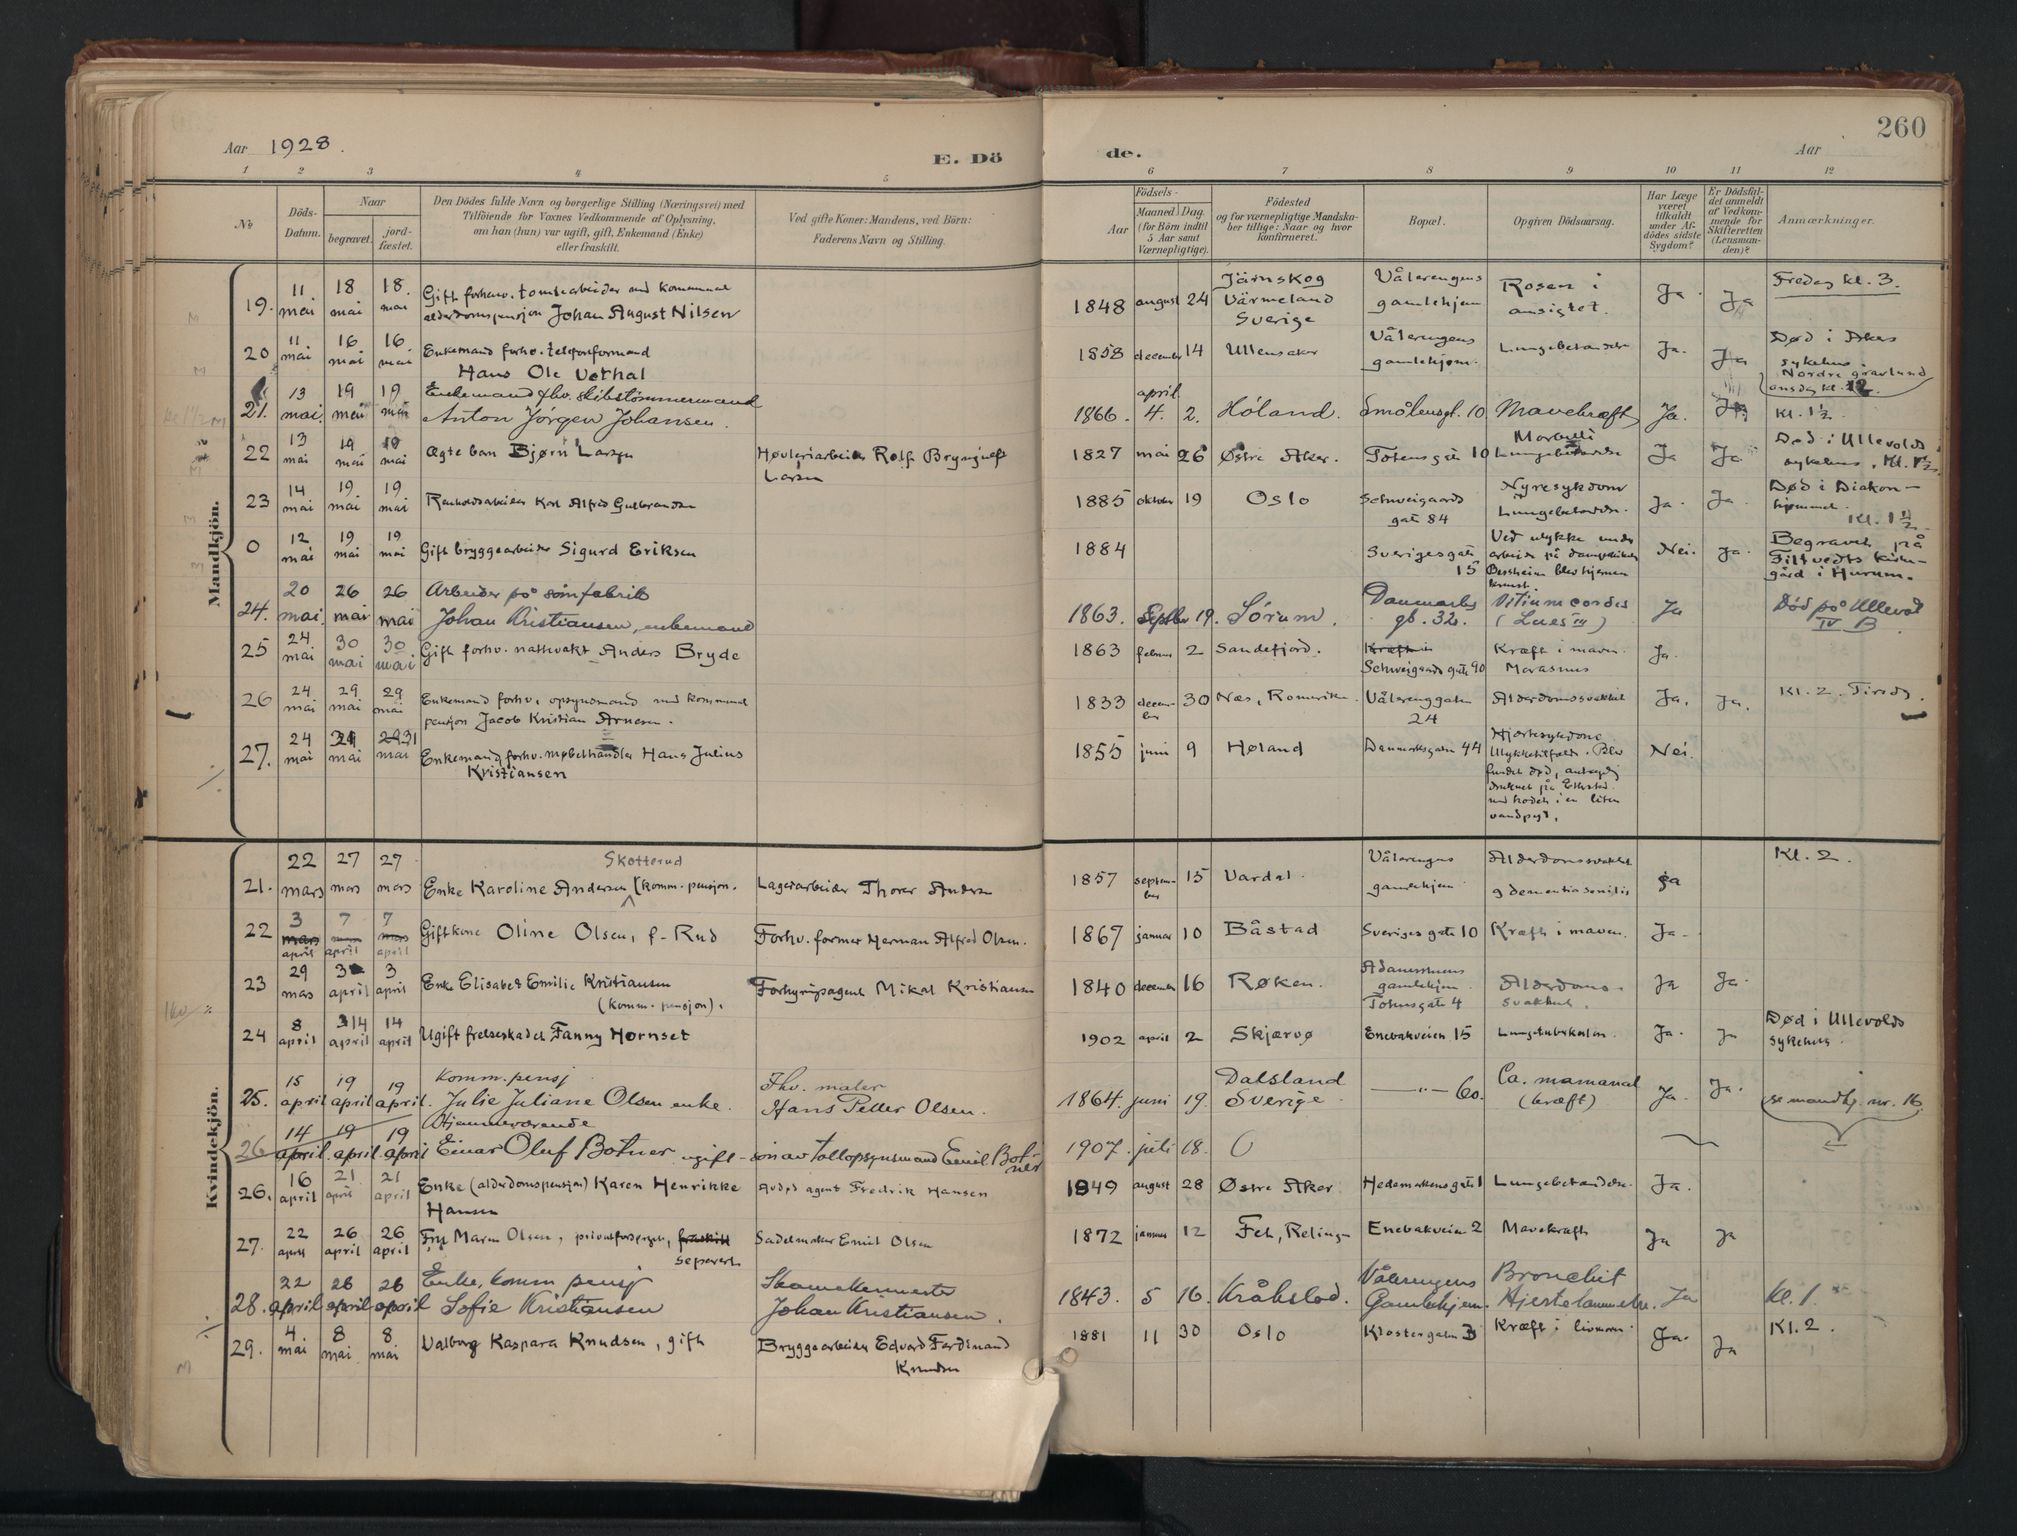 Aar 1928.
E. Dö
de.
Aar
260
1 2 3 4 5 6 7 8 9 10 11 12
No
Döds-
Datum.
Naar
begravet.
jord-
fæstet.
Den Dödes fulde Navn og borgerlige Stilling (Næringsvei) med
Tilföiende for Voxnes Vedkommende af Oplysning,
om han (hun) var ugift, gift, Enkemand (Enke)
eller fraskilt.
Ved gifte Koner: Mandens, ved Börn:
Faderens Navn og Stilling.
Födsels-
Aar
Maaned. Dag.
(for Börn indtil
5 Aar samt
Værnepligtige).
Födested
og for værnepligtige Mandska-
ber tillige: Naar og hvor
konfirmeret.
Bopæl.
Opgiven Dödsaarsag.
Har Læge
været
tilkaldt
under Af-
dödes sidste
Sygdom?
Er Dödsfal-
det anmeldt
af Vedkom-
mende for
Skifteretten
(Lensman-
den)?
Anmærkninger.
Mandkjön.
19. 11 mai 18 mai 18. mai Gift forhenv. tomtearbeider med kommunal
alderdomspensjon Johan August Nilsen
1848 august 24 Järnskog
Värmeland
Sverige
Vålerengens
gamlehjem
Rosen i
ansigtet.
Ja. Ja Fredag kl. 3.
20 11 mai 16 mai 16. mai Enkemand forhv. telefonformand
Hans Ole Vethal
1858 december 14 Ullensaker
Vålerengens
gamlehjem.
Lungebetændelse
Ja. Ja Død i Akers
sykehus.
Nordre gravlund
onsdag kl. 12.
21. 13 mai. 19 mai 19 mai Enkemand fhv. skibstømmermand
Anton Jörgen Johansen.
1866. april 4. 2. Höland. Smålensgt. 10 Mavekræft Ja. Ja. Kl. 1½
22 13 mai 19 mai 19 mai Ægte barn Bjørn Larsen
Høvleriarbeider Rolf Brynjulf
Larsen
1827 mai 26 Østre Aker. Totensgate 10 Morbilli
Lungebetændelse
Ja Ja Død i Ullevolds
sykehus, Kl. 1½
23 14 mai 19 mai 19 mai Renholdsarbeider Karl Alfred Gulbrandsen
1885 oktober 19 Oslo Schweigaards
gate 84
Nyresykdom
Lungebetændelse.
Ja. Ja. Død i Diakon-
hjemmet.
Kl. 1½
0 12 mai 19 mai 19 mai Gift bryggearbeider Sigurd Eriksen
1884 Sverigesgate
15
Ved ulykke under
arbeide på dampskibet
blev hjernen
knust.
Nei. Ja. Begravet på
Filtvedts kirke-
gård i Hurum.
24. 20 mai. 26 mai 26 mai Arbeider på sömfabrik
Johan Kristiansen, enkemand
1863. Septbr 19. Sörum. Danmarks
gt. 32.
Vitium cordis
(Lues III)
Ja Död på Ullevol
IV B
25 24 mai 30 mai 30 mai Gift forhv. nattevakt Anders Bryde
1863 februar 2 Sandefjord. Kræft i
Schweigaards gate 90
Kræft i maven.
Marasmus
Ja.
26 24 mai 29 mai 29 mai Enkemand forhv. opsynsmand med kommunal
pensjon Jacob Kristian Arnesen.
1833 decem-
ber 30 Næs, Romerike. Vålerenggaten
24
Alderdomssvakhet Ja. Ja. Kl. 2. Tirsdg.
27. 24 mai 31 mai 31 mai Enkemand forhv. møbelhandler Hans Julius
Kristiansen
1855 juni 9 Høland Danmarksgaten 44 Hjertesykdom
Ulykkestilfælde. Blev
fundet død, antagelig
druknet på Ekeberg
med hodet i en liten
vandpyt.
Nei.
Kvindekjön.
21. 22 mars 27 mars 27 mars Skotterud
Enke Karoline Andersen [komm. pensjon.
Lagerarbeider Thorer Andersen
1857 septem-
ber 15 Vardal. Vålerengens
gamlehjem
Alderdomssvakhet
og dementia senilis
Ja Kl. 2.
22 3 mars april 7 mars april 7 mars april Gift kone Oline Olsen, f. Rud
Forhv. former Herman Alfred Olsen.
1867 januar 10 Båstad Sveriges gate 10 Kræft i maven. Ja.
23 29 mars 3 april 3 april Enke Elisabet Emilie Kristiansen
(komm. pensjon).
Forhyringsagent Mikal Kristiansen
1840 december 16 Røken.
gamlehjem
Totensgate 4
Alderdoms-
svakhet.
Ja Ja.
24 8 april 14 april 14 april Ugift frelseskadet Fanny Hornset
1902 april 2 Skjærvø Enebakveien 15 Lungetuberkulose. Ja. Ja Død i Ullevolds
sykehus.
25. 15 april 19 april 19 april. komm. pensj
Julie Juliane Olsen enke.
Fhv. maler
Hans Petter Olsen.
1864. juni 19. Dalsland
Sverige
—"— 60. Ca. mamma
(kræft)
Ja. Ja.
26 14 april 19 april. 19 april Hjemmeværende
Einar Oluf Botner ugift - sön av tollopsynsmand Emil Bot-
ner
1907. juli 18. se mandkj. nr. 16
26. 16 april 21 april 21 april Enke (alderdomspensjon) Karen Henrikke
Hansen
Avdød agent Fredrik Hansen
1849 august 28 Østre Aker Hedemarkens gate 1 Lungebetændelse. Ja.
27. 22 april 26 april 26 april Fru Maren Olsen, privat forsørget, fraskilt
separert
Sadelmaker Emil Olsen
1872 januar 12 Fet, Relingen Enebakveien 2 Mavekræft Ja Ja
28. 22 april 26 april 26 april Enke, komm pensj
Sofie Kristiansen
Skomakermester
Johan Kristiansen.
1843. 5 16. Kråkstad. Vålerengens
Gamlehjem.
Bronchit
Hjertelammelse.
Ja Kl. 1.
29. 4 mai 8 mai 8 mai Valborg Kaspara Knudsen, gift
Bryggearbeider Edvard Ferdinand
Knudsen
1881 11 30 Oslo Klostergaten 3 Kræft i livmoren. Ja. Ja Kl. 2.